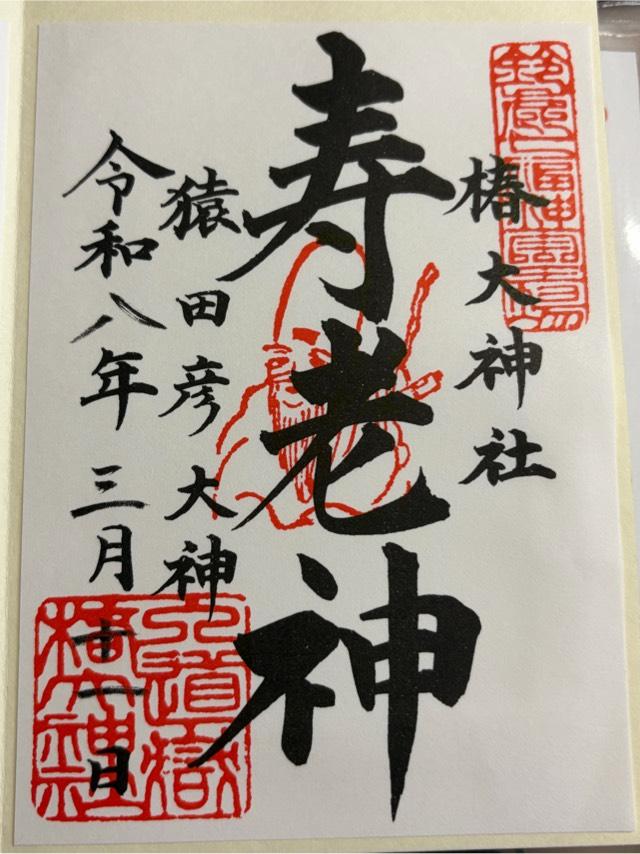 鈴鹿七福神霊場
椿大神社
寿老神
猿田彦大神
令和八年 三月 十一日
地祇大本宮
椿大神社